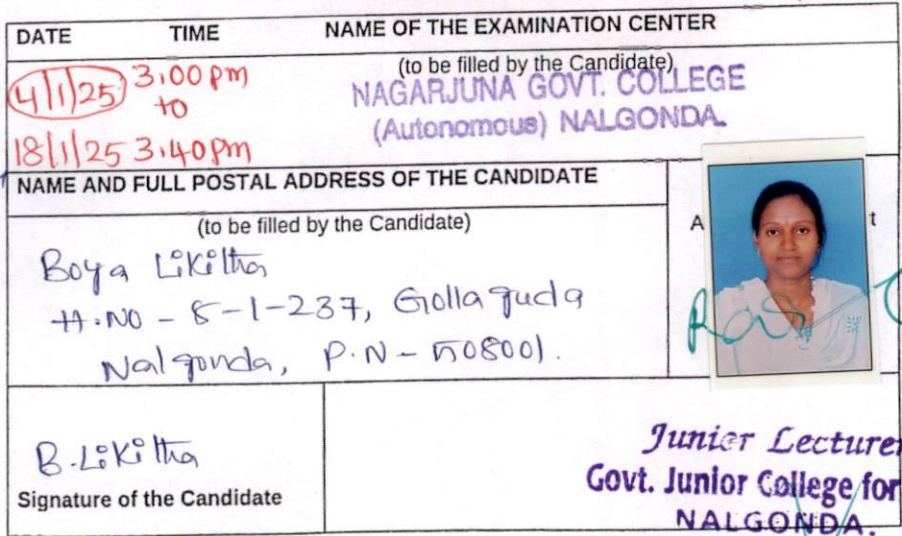 DATE TIME NAME OF THE EXAMINATION CENTER
(to be filled by the Candidate)
4/1/25 3:00 pm
to
18/1/25 3:40 pm
NAGARJUNA GOVT. COLLEGE
(Autonomous) NALGONDA.
NAME AND FULL POSTAL ADDRESS OF THE CANDIDATE
(to be filled by the Candidate)
Boya Likitha
H.NO - 8-1-237, Gollaguda
Nalgonda, P.N - 508001.
A t
B. Likitha
Signature of the Candidate
Junior Lecturer
Govt. Junior College for
NALGONDA.